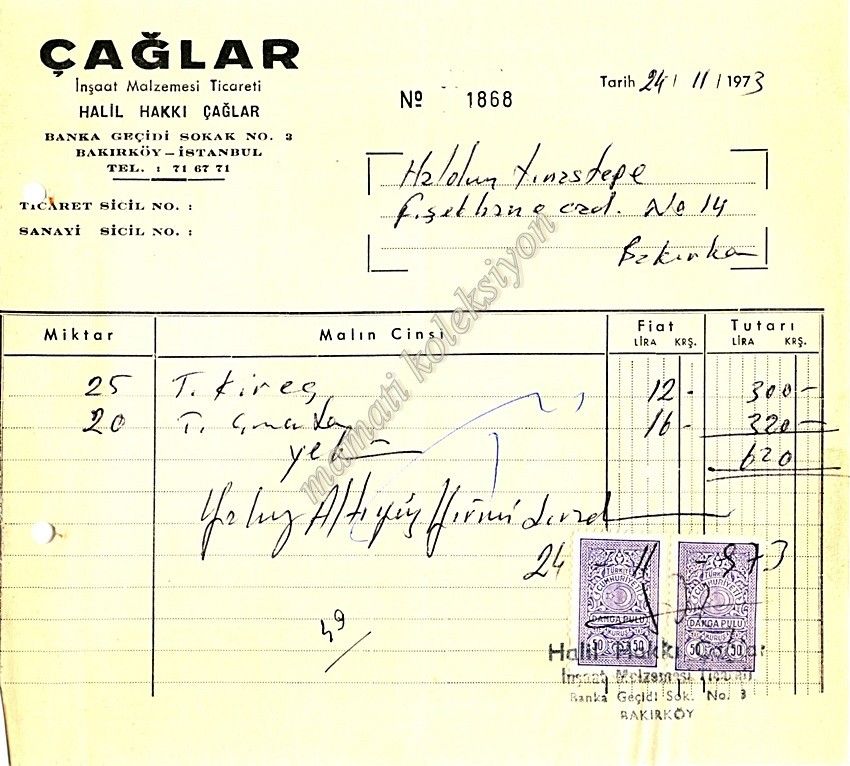 ÇAĞLAR
İnşaat Malzemesi Ticareti
HALİL HAKKI ÇAĞLAR
BANKA GEÇİDİ SOKAK NO. 3
BAKIRKÖY – İSTANBUL
TEL. : 71 67 71
TİCARET SİCİL NO. :
SANAYİ SİCİL NO. :
Nº 1868
Tarih 24 / 11 / 1973
Haldun
cad. No 14
Bakırköy
Miktar Malın Cinsi Fiat Tutarı
LİRA KRŞ. LİRA KRŞ.
25 T. Kireç 12 - 300 -
20 T. 16 - 320 -
yek 620
Yalnız Altıyüz Yirmi Liradır
24 - 11 - 973
49
TÜRKİYE CUMHURİYETİ
DAMGA PULU
50 KURUŞ 50
TÜRKİYE CUMHURİYETİ
DAMGA PULU
50 KURUŞ 50
Halil Hakkı Çağlar
İnşaat Malzemesi Ticareti
Banka Geçidi Sok. No. 3
BAKIRKÖY
mamati koleksiyon